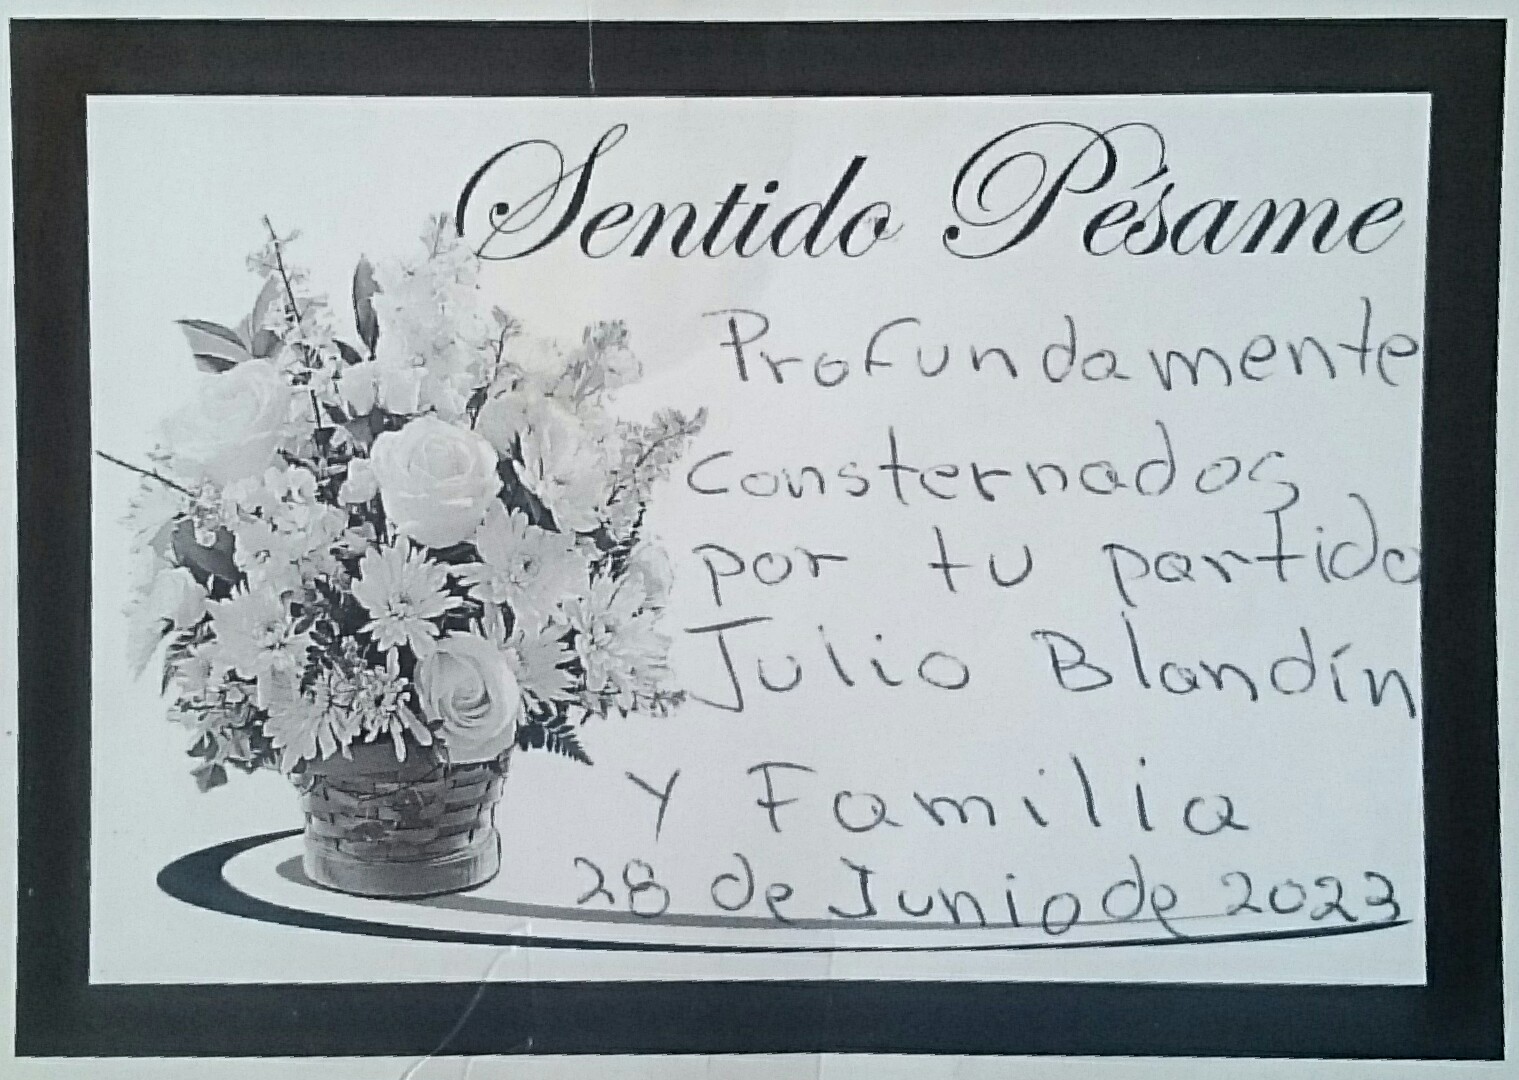 Sentido Pésame
Profundamente
consternados
por tu partida
Julio Blandín
Y Familia
28 de Junio de 2023